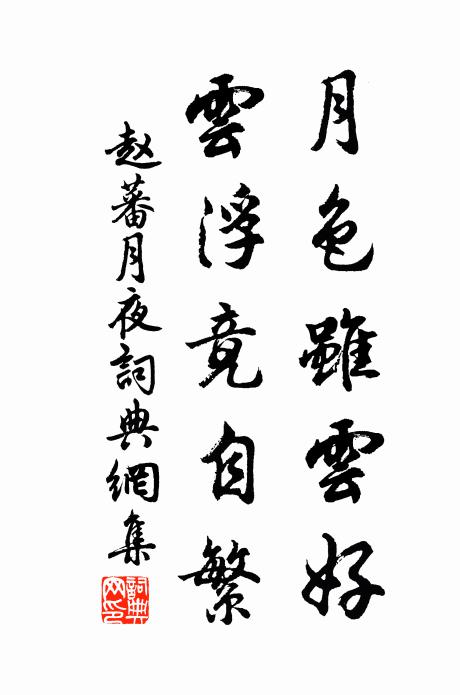 月色雖雲好
雲浮竟自繁
赵蕃月夜詞典網集
詞典网印